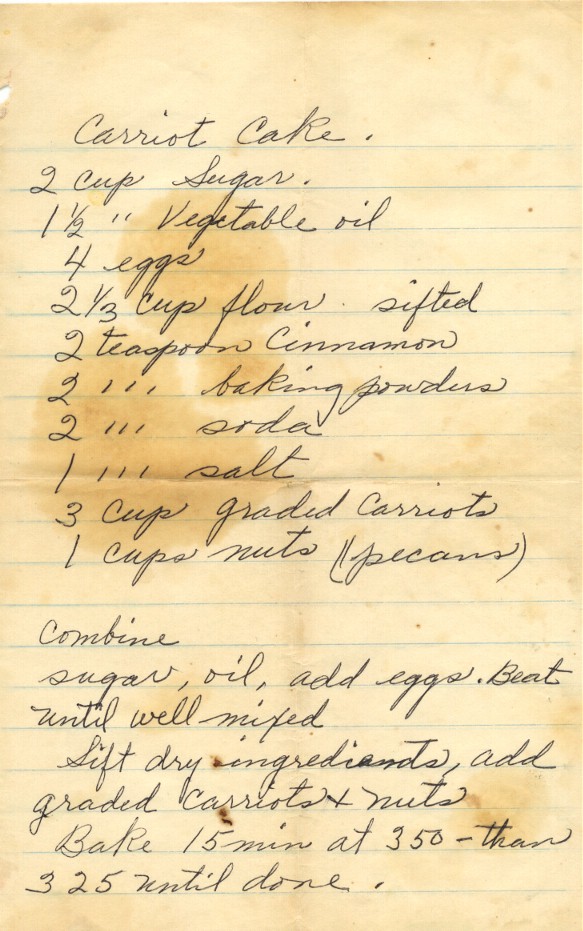 Carriot Cake.
2 cup Sugar.
1 1/2 " Vegetable oil
4 eggs
2 1/3 cup flour. sifted
2 teaspoon Cinnamon
2 ''' baking powders
2 ''' soda
1 ''' salt
3 cup graded Carriots
1 cups nuts (pecans)
Combine
sugar, oil, add eggs. Beat
until well mixed
Sift dry ingrediants, add
graded Carriots & nuts
Bake 15 min at 350 - than
325 until done.